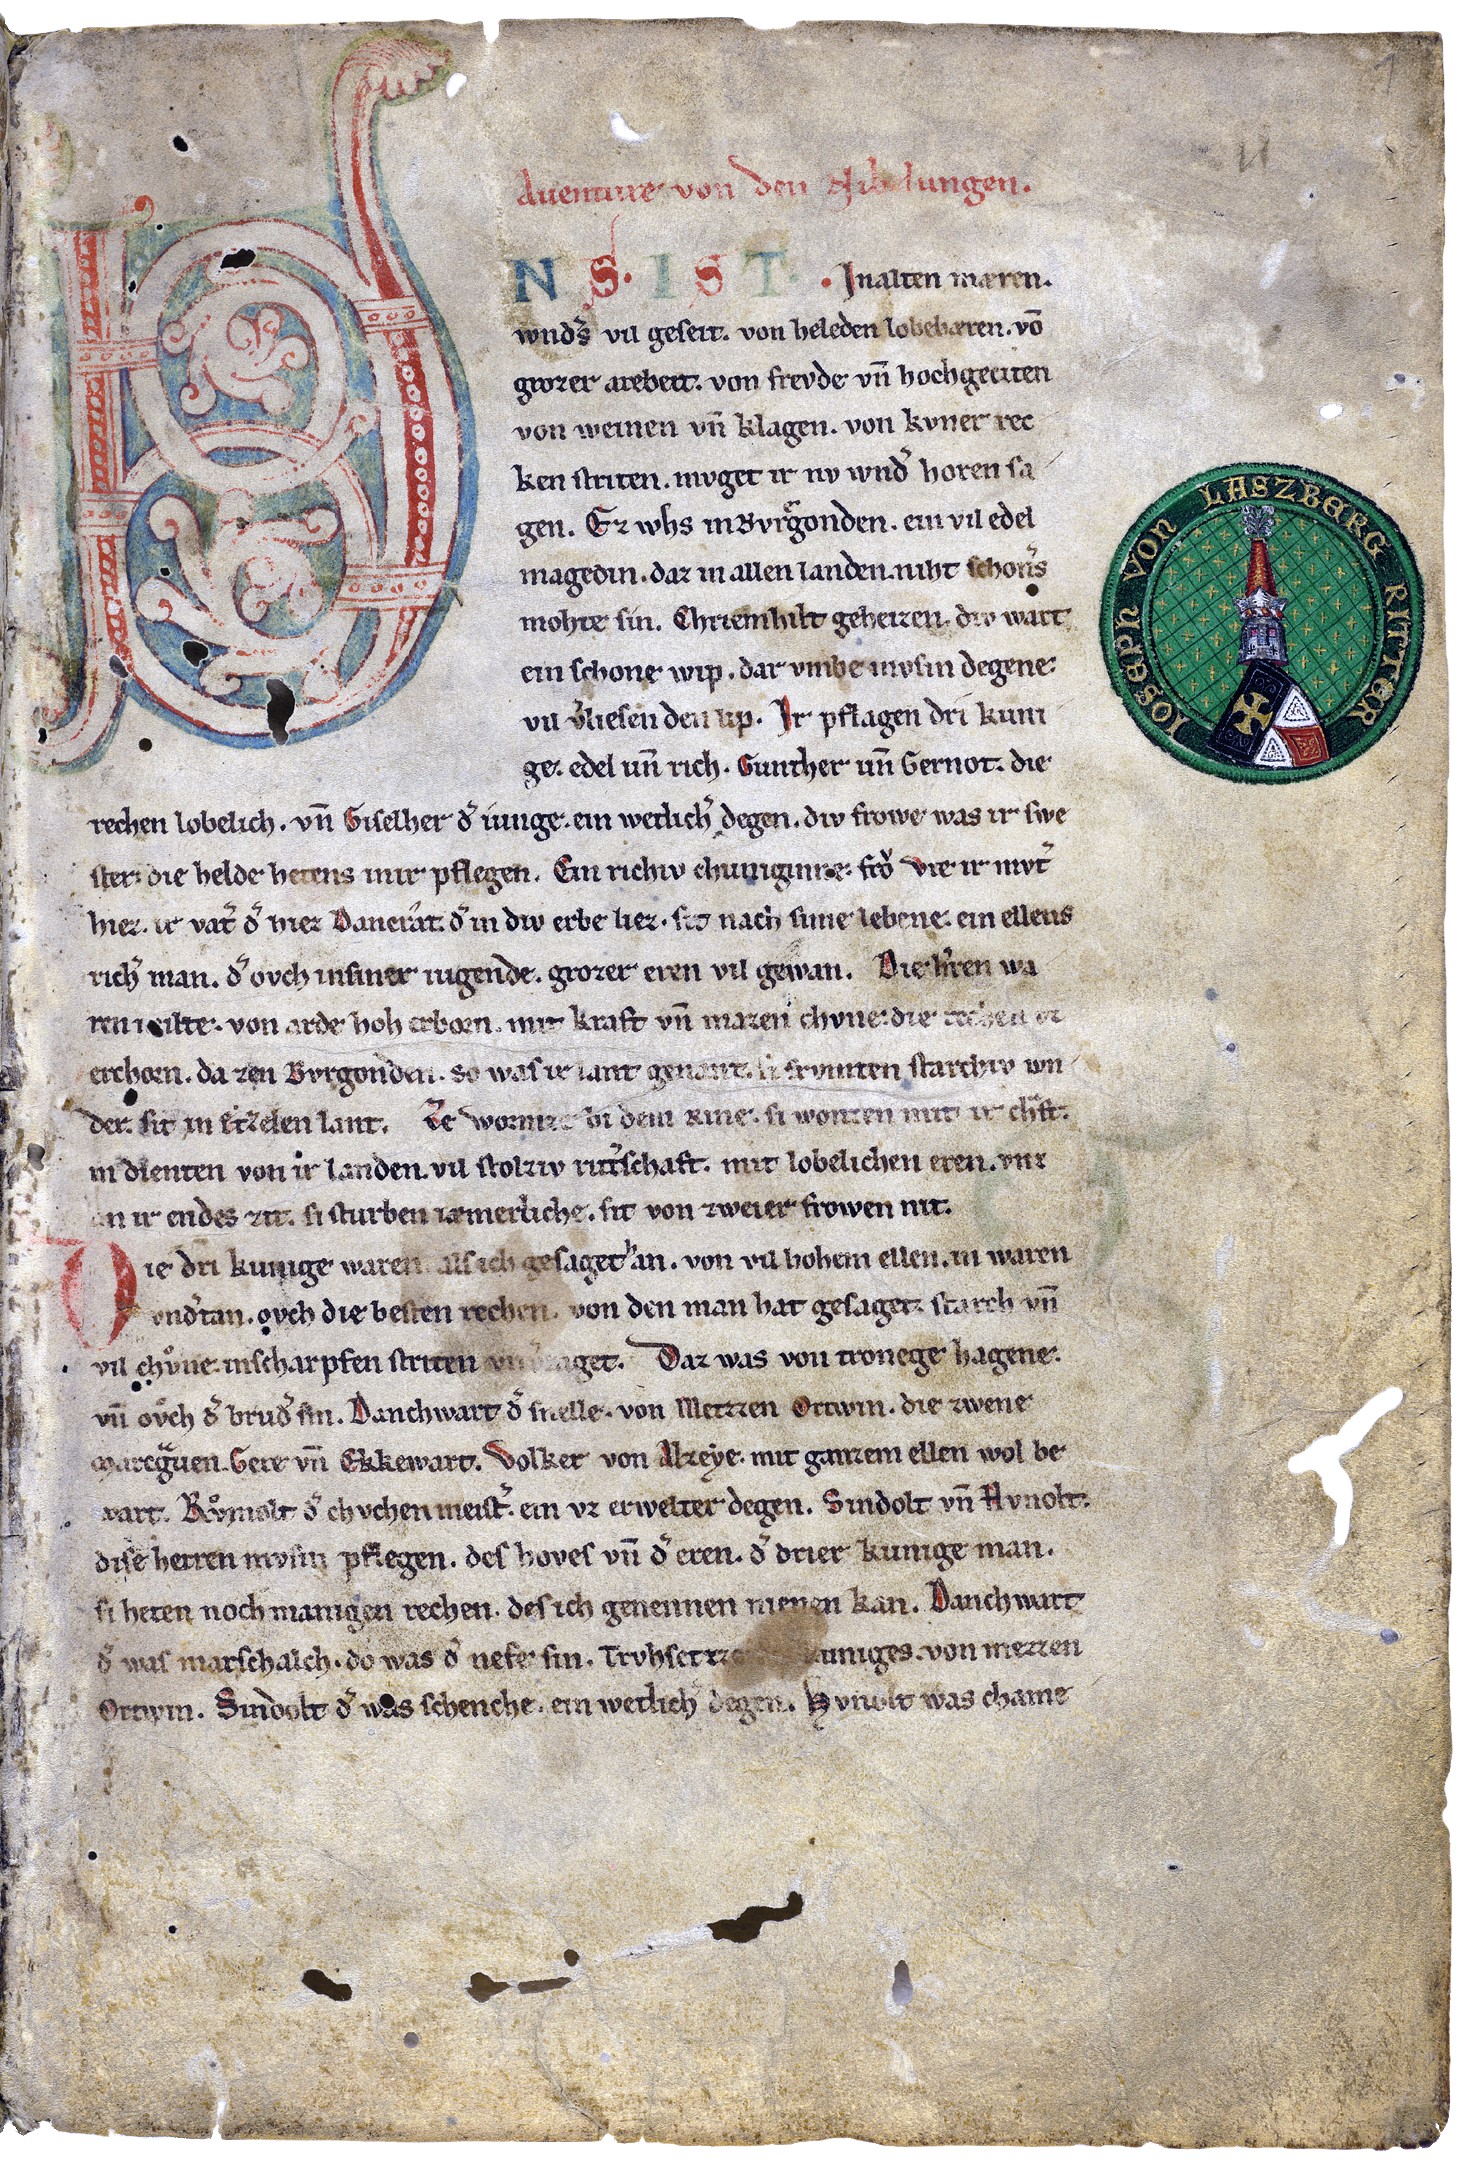 Auenture von den Nibelungen.
VNS. IST. Inalten mæren.
wnds̉ vil geseit. von heleden lobebæren. vō
grozer arebeit. von frevde vn̄ hochgeciten
von weinen vn̄ klagen. von kvner rec
ken striten. mvget ir nv wnd̉ horen sa
gen. Ez whs inBvrgonden. ein vil edel
magedin. daz in allen landen. niht schoñs
mohte sin. Chriemhilt geheizen. div wart
ein schone wip. dar vmbe mvsin degene
vil v̉liesen den lip. Ir pflagen dri kuni
ge. edel un̄ rich. Gunther un̄ Gernot. die
rechen lobelich. vn̄ Giselher d̉ iunge. ein wetlich̉ degen. div frowe was ir swe
ster. die helde hetens inir pflegen. Ein richiv chuniginne. frǒ Vte ir mvt̉
hiez. ir vat̉ d̉ hiez Dancrat. d̉ in div erbe liez. sit nach sime lebene. ein ellens
rich̉ man. d̉ ovch insiner iugende. grozer eren vil gewan. Die h̉ren wa
ren milte. von arde hoh erborn. mit kraft vn̄ mazen chvne. die rechen vz
erchorn. da zen Bvrgonden. so was ir lant genant. si frvmten starchiv wn
der. sit in Etzelen lant. Ze Wormze bi dem Rine. si wonten mit ir ch̉ft.
in dienten von ir landen. vil stolziv rit̉schaft. mit lobelichen eren. vnz
an ir endes zit. si sturben iæmerliche. sit von zweier frowen nit.
Die dri kunige waren. als ich gesaget han. von vil hohem ellen. in waren
vnd̉tan. ovch die besten rechen. von den man hat gesaget. starch vn̄
vil chv̊ne. inscharpfen striten vnv̉zaget. Daz was von tronege hagene.
vn̄ ovch d̉ brud̉ sin. Danchwart d̉ snelle. von Metzzen Ortwin. die zwene
Marcgͣuen. Gere vn̄ Ekkewart. Volker von Alzeye. mit ganzem ellen wol be
wart. Rvͦmolt d̉ chvchen meist̉. ein vz erwelter degen. Sindolt vn̄ Hvnolt.
dise herren mvsin pflegen. des hoves vn̄ d̉ eren. d̉ drier kunige man.
si heten noch manigen rechen. des ich genennen nienen kan. Danchwart
d̉ was marschalch. do was d̉ nefe sin. Trvhsetze kuniges. von mezzen
Ortwin. Sindolt d̉ was schenche. ein wetlich̉ degen. Hvnolt was chame
IOSEPH VON LASZBERG RITTER